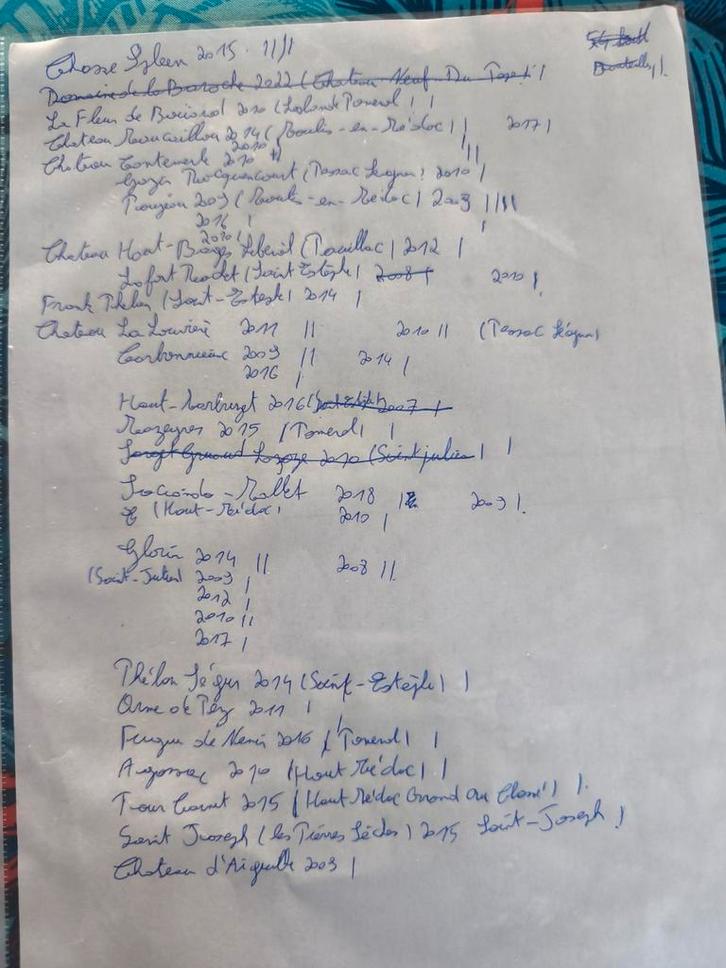 Chasse Spleen 2015 . 11/1
Domaine de la Baroche 2022 (Chateau Neuf Du Pape) |
La Fleur de Boüard 2010 (Lalande Pomerol | |
Chateau 2014 (Moulis-en-Médoc) | | 2017 |
2010
Chateau 2010 |||
(Pessac Léognan) 2010 |
2009 (Moulis-en-Médoc) 2003 | ||||
2016 | |
2010 |
Chateau Haut-Bages Libéral (Pauillac) 2012 |
Lafon Rochet (Saint Estèphe) 2008 | 2010 |.
Frank Phélan (Saint-Estèphe) 2014 |
Chateau La Louvière 2011 || 2010 || (Pessac Léognan)
Carbonnieux 2009 || 2014 |
2016 |
Haut-Marbuzet 2016 (Saint Estèphe) 2007 |
Mazeyres 2015 (Pomerol) |
2010 (Saint julien) | |
Sociando-Mallet 2018 | 2003 |.
(Haut-Médoc) 2010 |
Gloria 2014 || 2008 ||
(Saint-Julien) 2009 |
2012 |
2010 ||
2017 |
Phélan Ségur 2014 (Saint-Estèphe) |
Orme de Pez 2011 |
Fugue de Nenin 2016 (Pomerol) |
2010 (Haut Médoc) |
Tour Carnet 2015 (Haut Médoc Grand Cru Classé) |.
Saint Joseph (les Pierres Sèches) 2015 Saint-Joseph |
Chateau d'Aiguilhe 2009 |